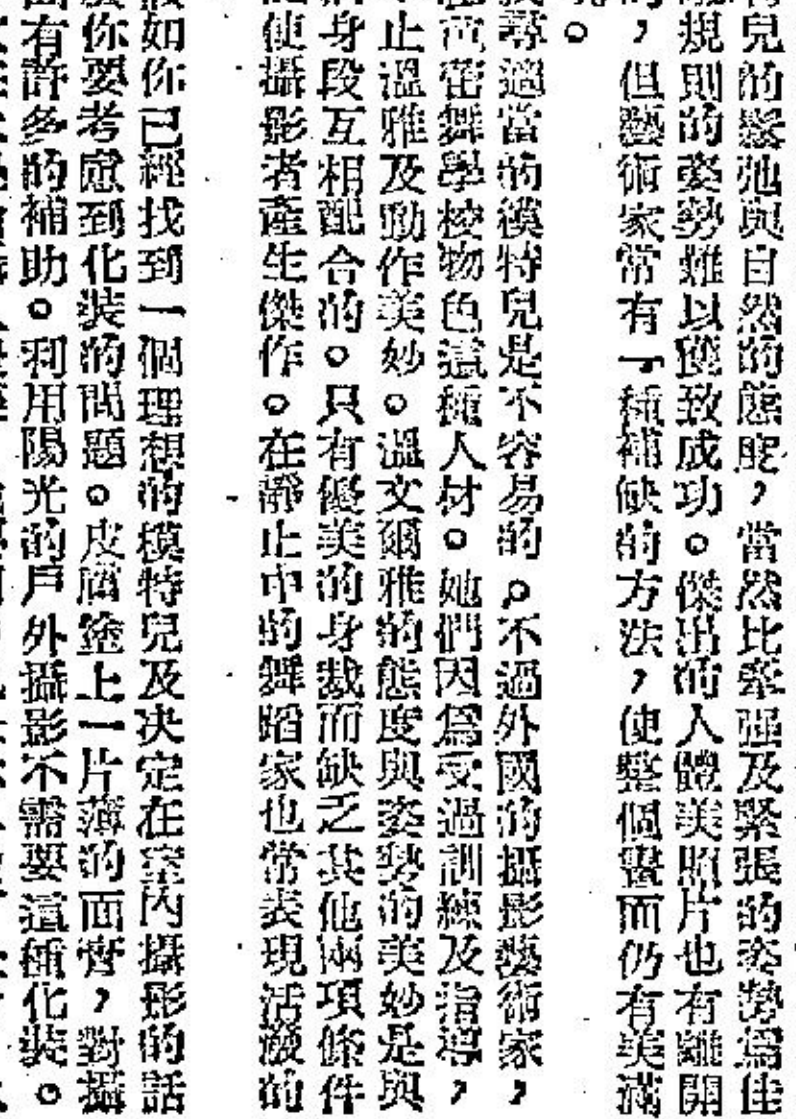 兒的鬆弛與自然的態度，當然比牽强及緊張的姿勢爲佳
規則的姿勢難以獲致成功。傑出的人體美照片也有離開
，但藝術家常有一種補缺的方法，使整個畫面仍有美滿
。
尋適當的模特兒是不容易的。不過外國的攝影藝術家，
舞學校物色這種人材。她們因爲受過訓練及指導，
止溫雅及動作美妙。溫文爾雅的態度與姿勢的美妙是與
身段互相配合的。只有優美的身裁而缺乏其他兩項條件
使攝影者產生傑作。在靜止中的舞蹈家也常表現活潑的
如你已經找到一個理想的模特兒及决定在室內攝影的話
你要考慮到化裝的問題。皮膚塗上一片薄的面膏，對攝
有許多的補助。利用陽光的戶外攝影不需要這種化裝。